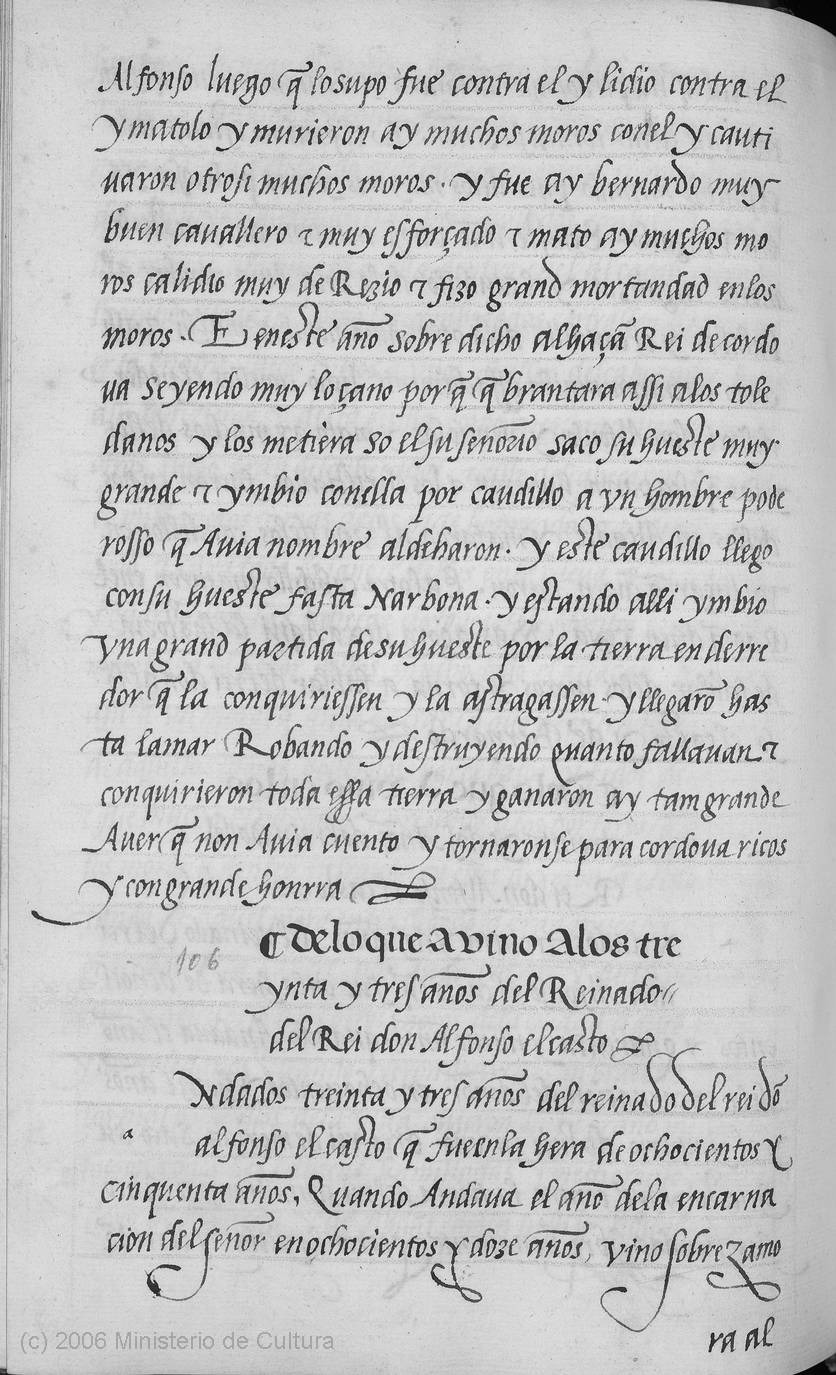 Alfonso luego q̃ lo supo fue contra el y lidio contra el
y matolo y murieron ay muchos moros con el y cauti
uaron otrosi muchos moros. y fue ay bernardo muy
buen cauallero ⁊ muy esforçado ⁊ mato ay muchos mo
ros ca lidio muy de Rezio ⁊ fizo grand mortandad en los
moros. E en este año sobre dicho alhaçã Rei de cordo
ua seyendo muy loçano por q̃ q̃brantara assi a los tole
danos y los metiera so el su señorio saco su hueste muy
grande ⁊ ymbio con ella por caudillo a vn hombre pode
rosso q̃ Auia nombre aldeharon. y este caudillo llego
con su hueste fasta Narbona. y estando alli ymbio
vna grand partida de su hueste por la tierra en derre
dor q̃ la conquiriessen y la astragassen y llegarõ has
ta la mar Robando y destruyendo quanto fallauan ⁊
conquirieron toda essa tierra y ganaron ay tam grande
Auer q̃ non Auia cuento y tornaronse para cordoua ricos
y con grande honrra
106
¶ de lo que avino A los tre
ynta y tres años del Reinado
del Rei don Alfonso el casto
Ndados treinta y tres años del reinado del rei dõ
a
alfonso el casto q̃ fue en la hera de ochocientos y
cinquenta años, Quando Andaua el año de la encarna
cion del señor en ochocientos y doze años, vino sobre zamo
ra al
(c) 2006 Ministerio de Cultura